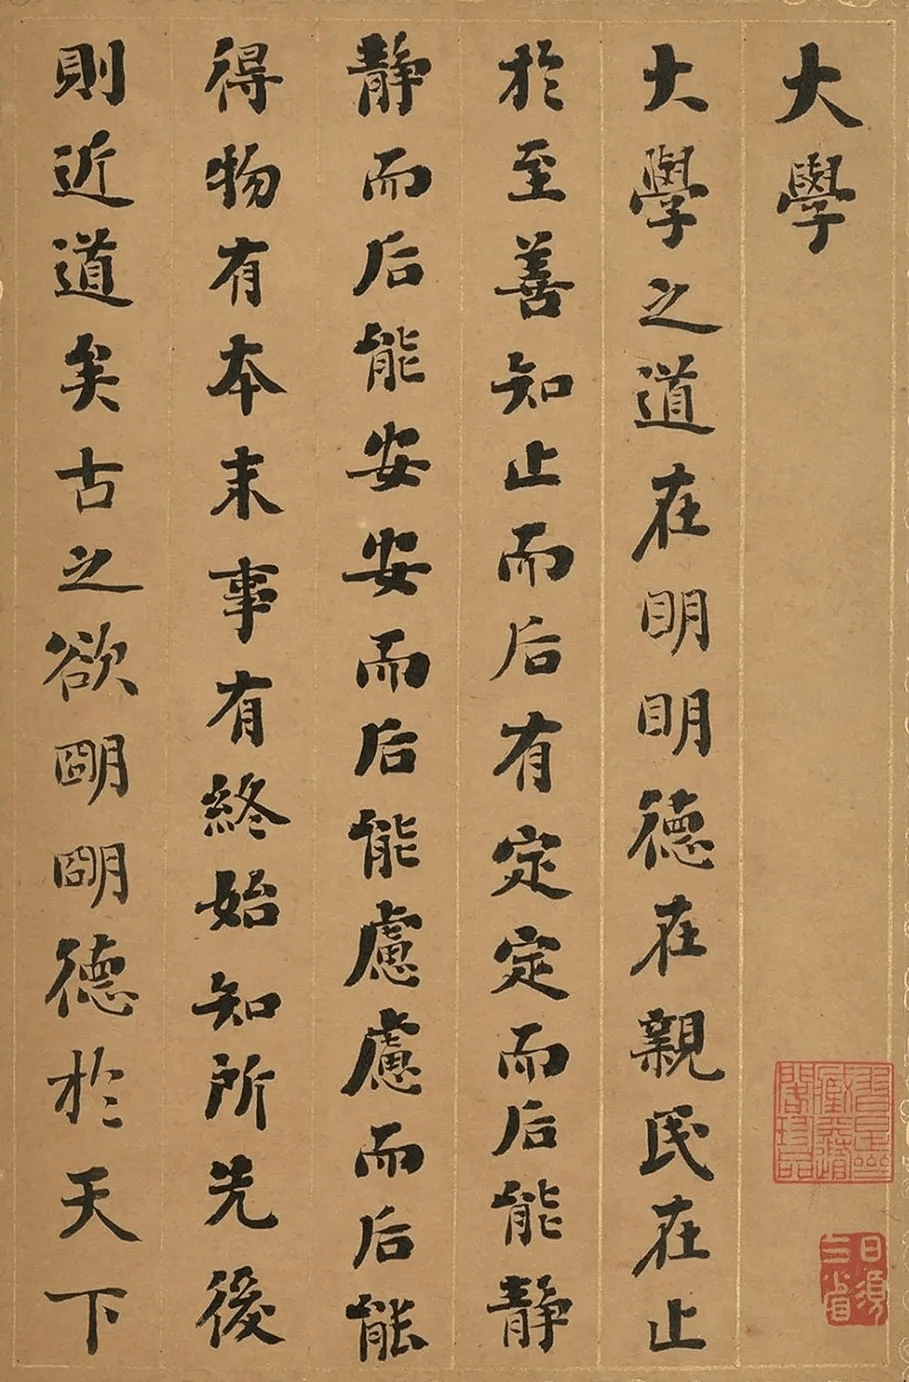 大學
大學之道在明明德在親民在止
於至善知止而后有定定而后能靜
靜而后能安安而后能慮慮而后能
得物有本末事有終始知所先後
則近道矣古之欲明明德於天下
日須三省